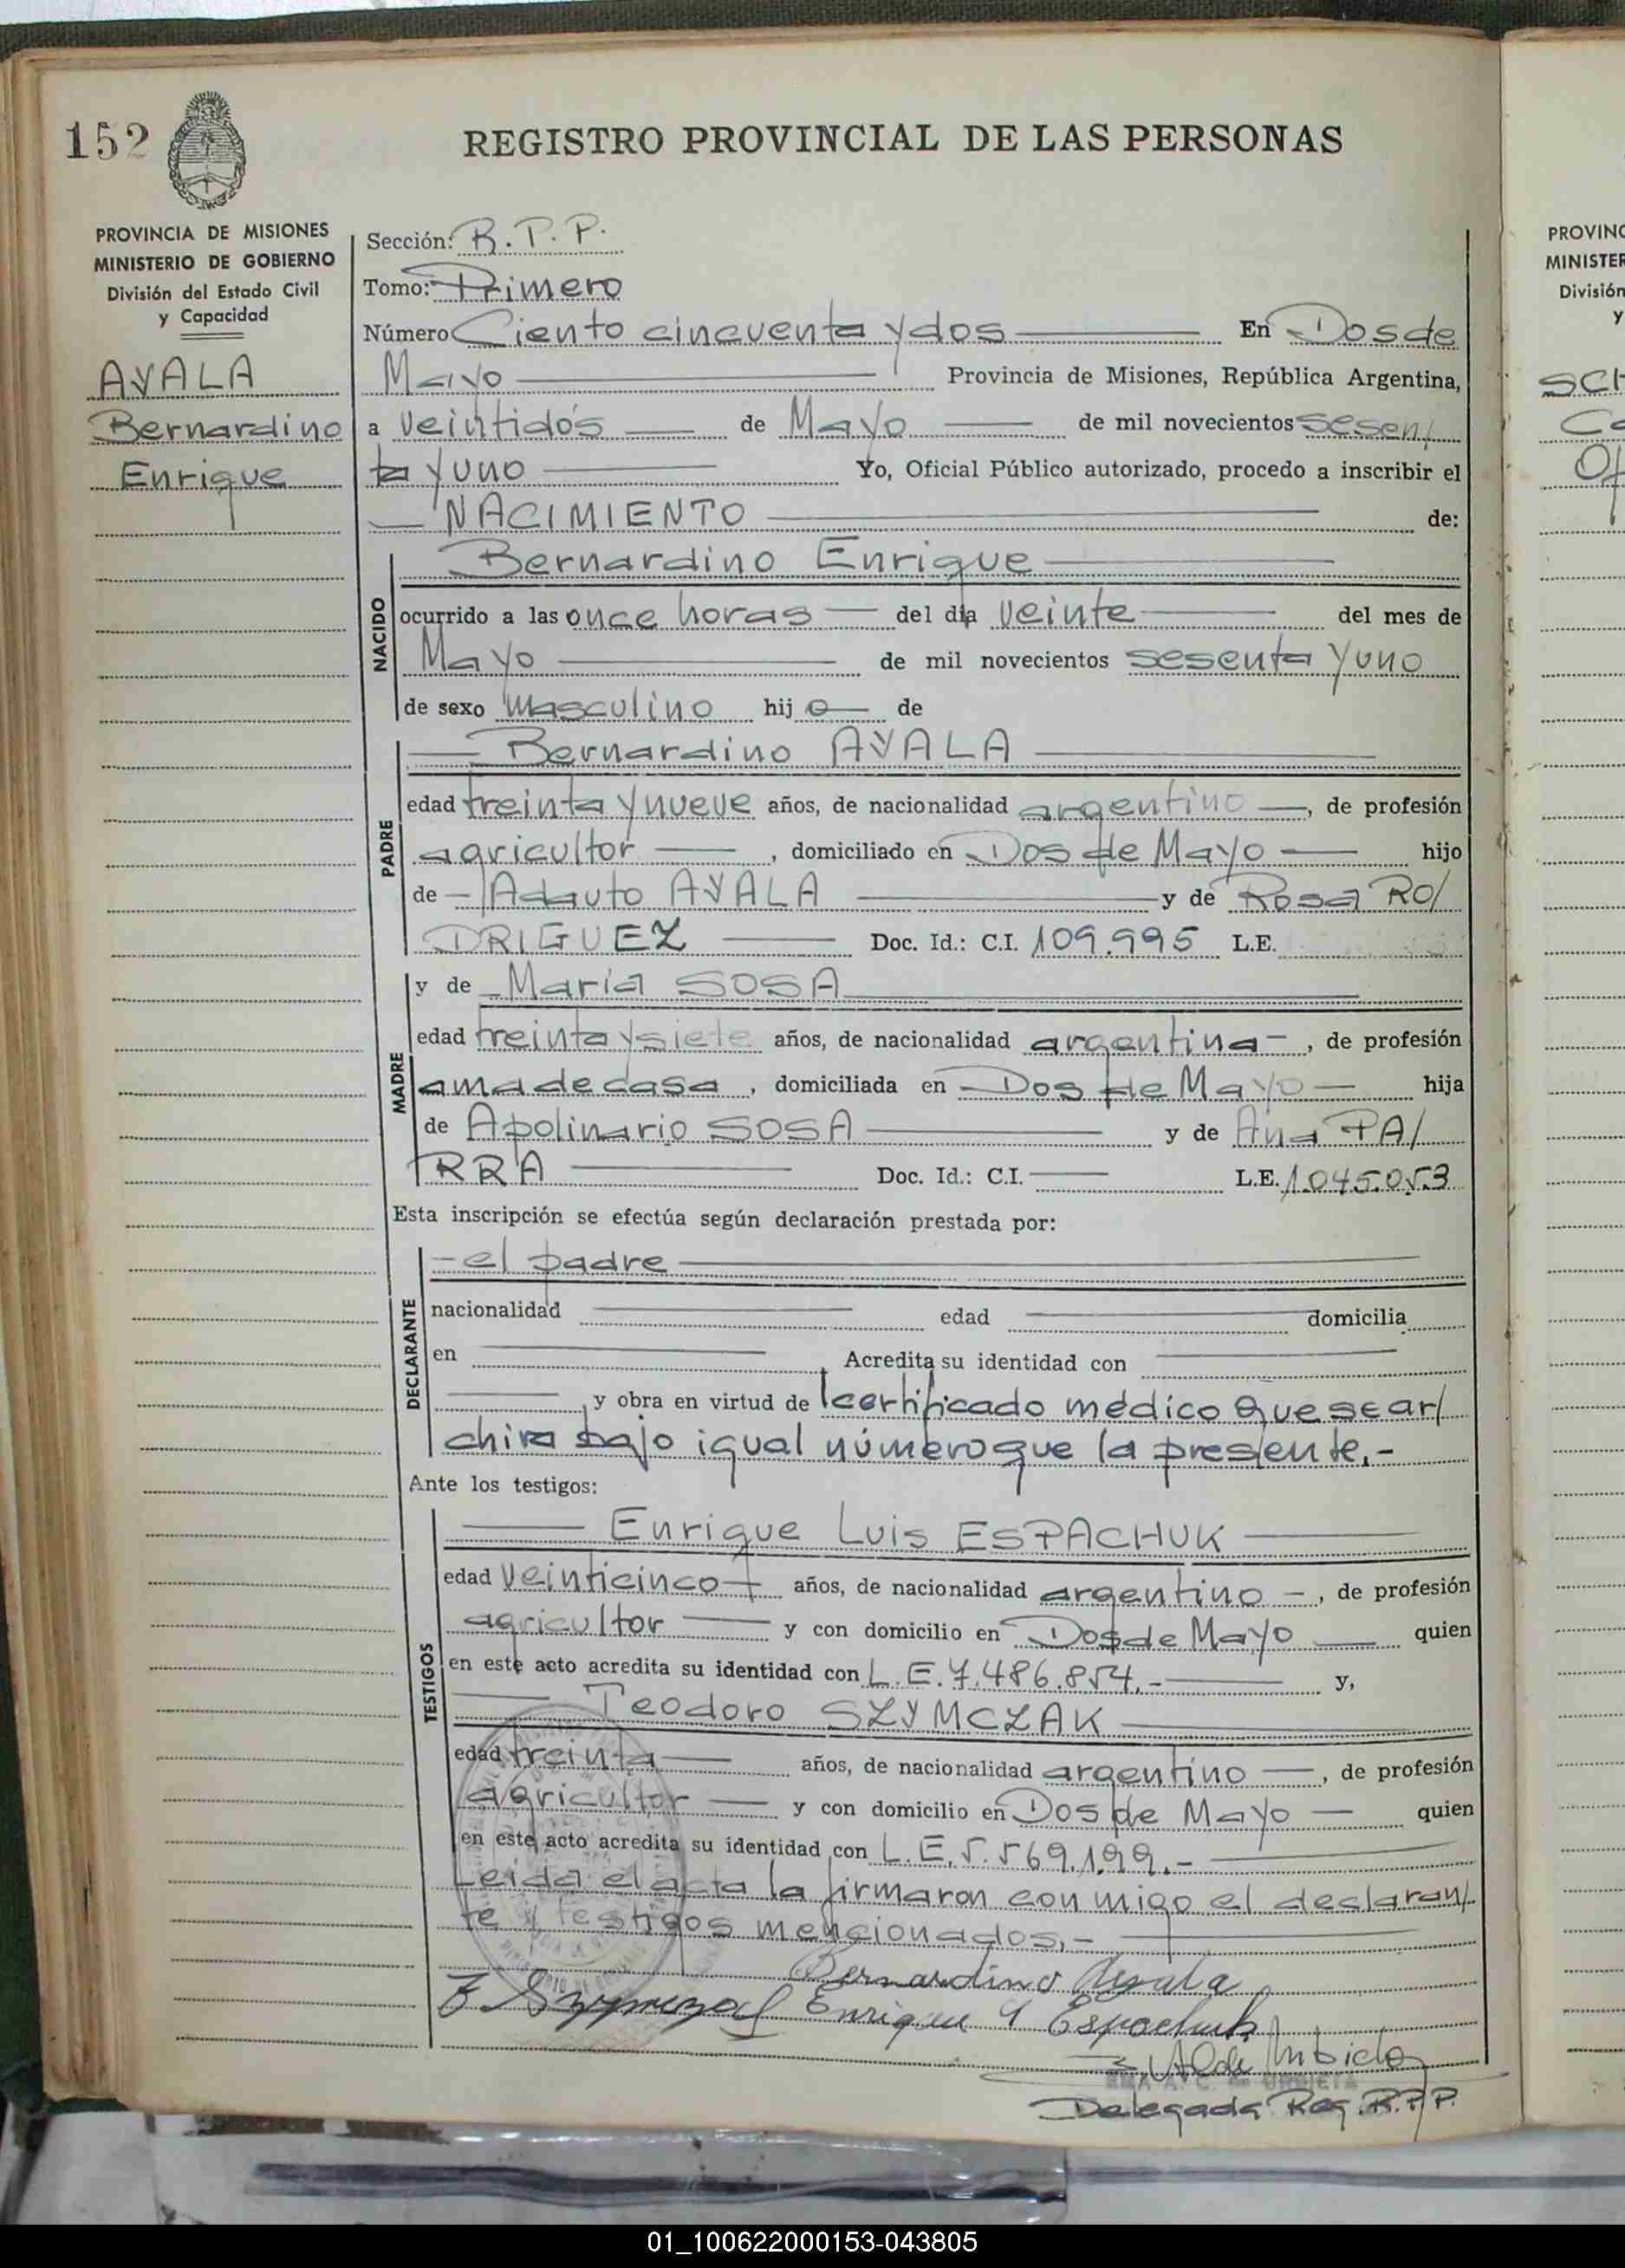 152
REGISTRO PROVINCIAL DE LAS PERSONAS
PROVINCIA DE MISIONES
MINISTERIO DE GOBIERNO
División del Estado Civil
y Capacidad
AYALA
Bernardino
Enrique
Sección: R.P.P.
Tomo: Primero
Número Ciento cincuenta y dos En Dos de
Mayo Provincia de Misiones, República Argentina,
a veintidós de Mayo de mil novecientos sesen/
ta y uno Yo, Oficial Público autorizado, procedo a inscribir el
NACIMIENTO de:
NACIDO
Bernardino Enrique
ocurrido a las once horas del día veinte del mes de
Mayo de mil novecientos sesenta y uno
de sexo masculino hijo de
PADRE
Bernardino AYALA
edad treinta y nueve años, de nacionalidad argentino, de profesión
agricultor, domiciliado en Dos de Mayo hijo
de Adauto AYALA y de Rosa RO/
DRIGUEZ Doc. Id.: C.I. 109.995 L.E.
MADRE
y de María SOSA
edad treinta y siete años, de nacionalidad argentina, de profesión
ama de casa, domiciliada en Dos de Mayo hija
de Apolinario SOSA y de Ana PA/
RRA Doc. Id.: C.I. L.E. 1.045.053
Esta inscripción se efectúa según declaración prestada por:
DECLARANTE
el padre
nacionalidad edad domicilia
en Acredita su identidad con
y obra en virtud de certificado médico que se ar/
chiva bajo igual número que la presente.-
Ante los testigos:
TESTIGOS
Enrique Luis ESPACHUK
edad veinticinco años, de nacionalidad argentino -, de profesión
agricultor y con domicilio en Dos de Mayo quien
en este acto acredita su identidad con L.E. 7.486.854.- y,
Teodoro SZYMCZAK
edad treinta años, de nacionalidad argentino, de profesión
agricultor y con domicilio en Dos de Mayo quien
en este acto acredita su identidad con L.E. 5.569.199.-
Leida el acta la firmaron con migo el declaran/
te y testigos mencionados.-
Bernardino Ayala
Enrique L Espachuk
Delegada Reg. R.P.P.
PROVINC
MINISTER
División
y
SCH
01_100622000153-043805